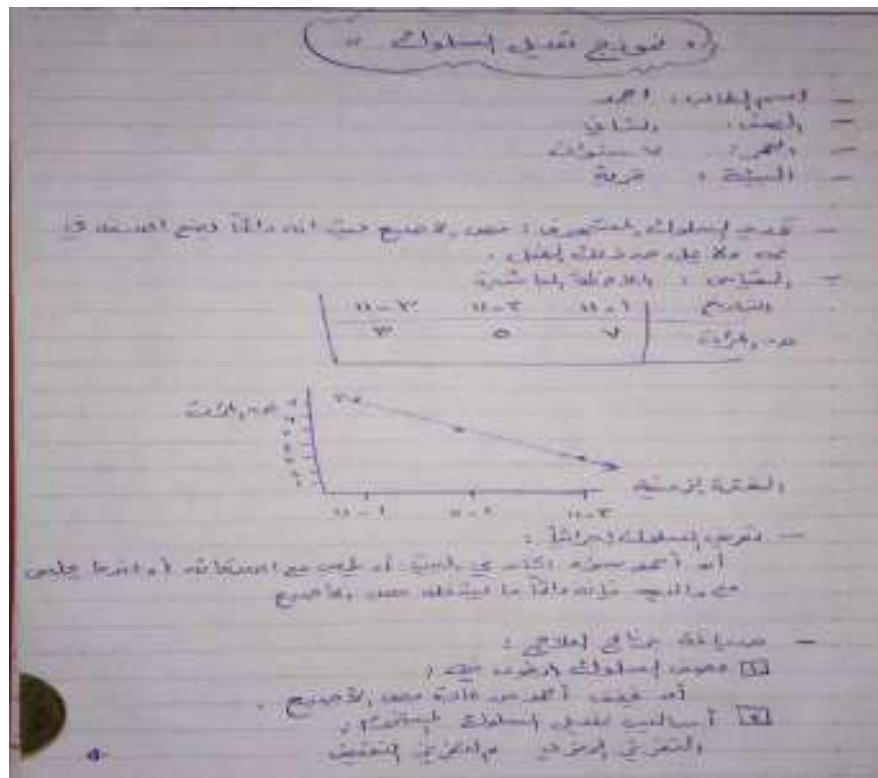 " نموذج تعديل السلوك "
– اسم الطالب : أحمد
– الصف : الثاني
– العمر : ٧ سنوات
– البيئة : قرية
– تحديد السلوك المستهدف : مص الاصبع حيث انه دائماً يضع اصبعه في
فمه ولا
– القياس : الملاحظة المباشرة
التاريخ ١-١١ ٢-١١ ٣-١١
عدد المرات ٧ ٥ ٣
عدد المرات
الفترة الزمنية
١-١١ ٢-١١ ٣-١١
– تعريف السلوك إجرائياً :
أن أحمد سواء كان في البيت أو يلعب مع اصدقائه أو عندما يجلس
مع والديه فإنه دائماً ما مص الأصبع
– صياغة برنامج علاجي :
١ السلوك المرغوب فيه :
أحمد من عادة مص الأصبع .
٢ أساليب تعديل السلوك المستخدمة :
التعزيز الرمزي والتعزيز